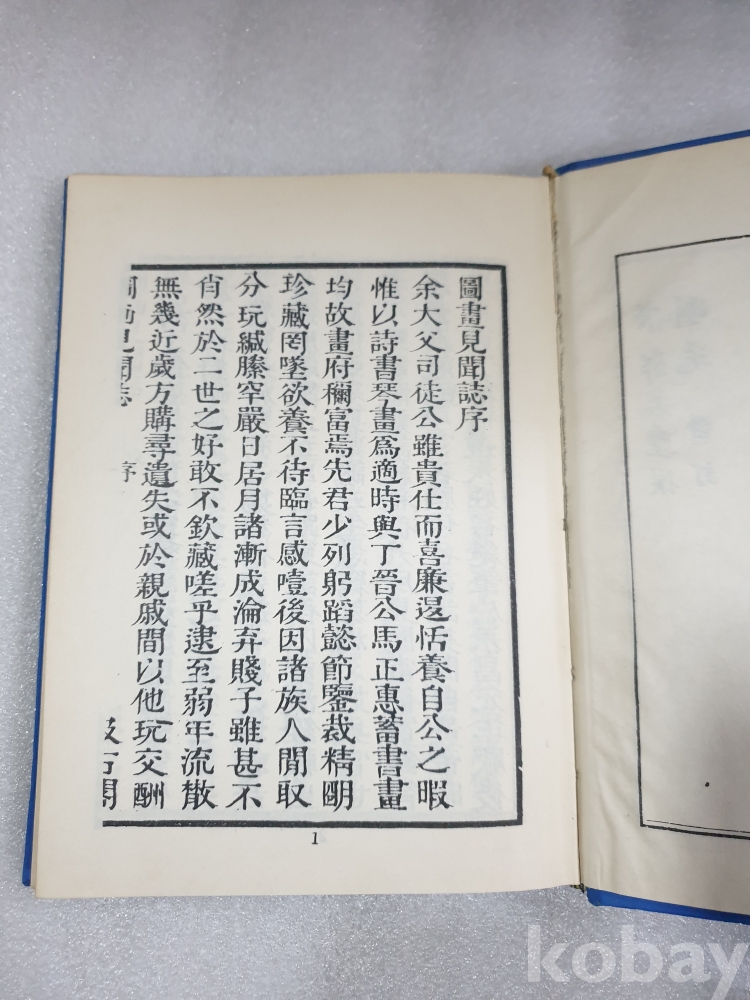 圖畫見聞誌序
余大父司徒公雖貴仕而喜廉退恬養自公之暇
惟以詩書琴畫爲適時與丁晉公馬正惠蓄書畫
均故畫府稱富焉先君少列躬蹈懿節鑒裁精明
珍藏罔墜欲養不待臨言感噎後因諸族人間取
分玩緘縢罕嚴日居月諸漸成淪弃賤子雖甚不
肖然於二世之好敢不欽藏嗟乎逮至弱年流散
無幾近歲方購尋遺失或於親戚間以他玩交酬
圖畫見聞誌 序 汲古閣
1
kobay